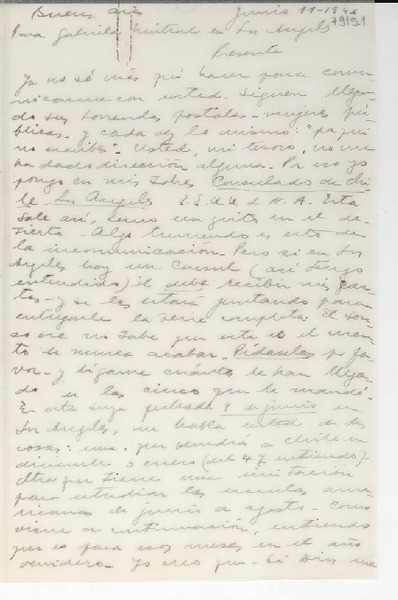 Buenos Aires Junio 11-1946
79191
Para Gabriela Mistral en Los Angeles
Presente
Ya no sé más qué hacer para comu-
nicarme con usted. Siguen llegan-
do sus horrendas postales - mujeres pú-
blicas - y cada vez lo mismo: "por qué
no escribes". Usted, mi tesoro, no me
ha dado dirección alguna. Por eso yo
pongo en mis sobres Consulado de Chi-
le Los Angeles E.E.U.U. de N.A. Esta
sale así, como un grito en el de-
sierto - Algo tremendo es esto de
la incomunicación. Pero si en Los
Angeles hay un Consul (así tengo
entendido) él debe recibir mis car-
tas - y se les estará juntando para
entregarle la serie completa. El
ese no sabe que este es el cuen-
to de nunca acabar. Pídaselas por fa-
vor - y dígame cuánto le han llega-
do en las cinco que le mandé.
En esta suya fechada 4 de junio en
Los Angeles, me habla usted de dos
cosas: una, que vendrá a Chile en
diciembre o enero (del 47 entiendo) -
otra que tiene una invitación
para estudiar las escuelas ame-
ricanas de junio a agosto. Como
viene a continuación, entiendo
que es para esos meses en el año
venidero. Yo creo que - Si Dios me